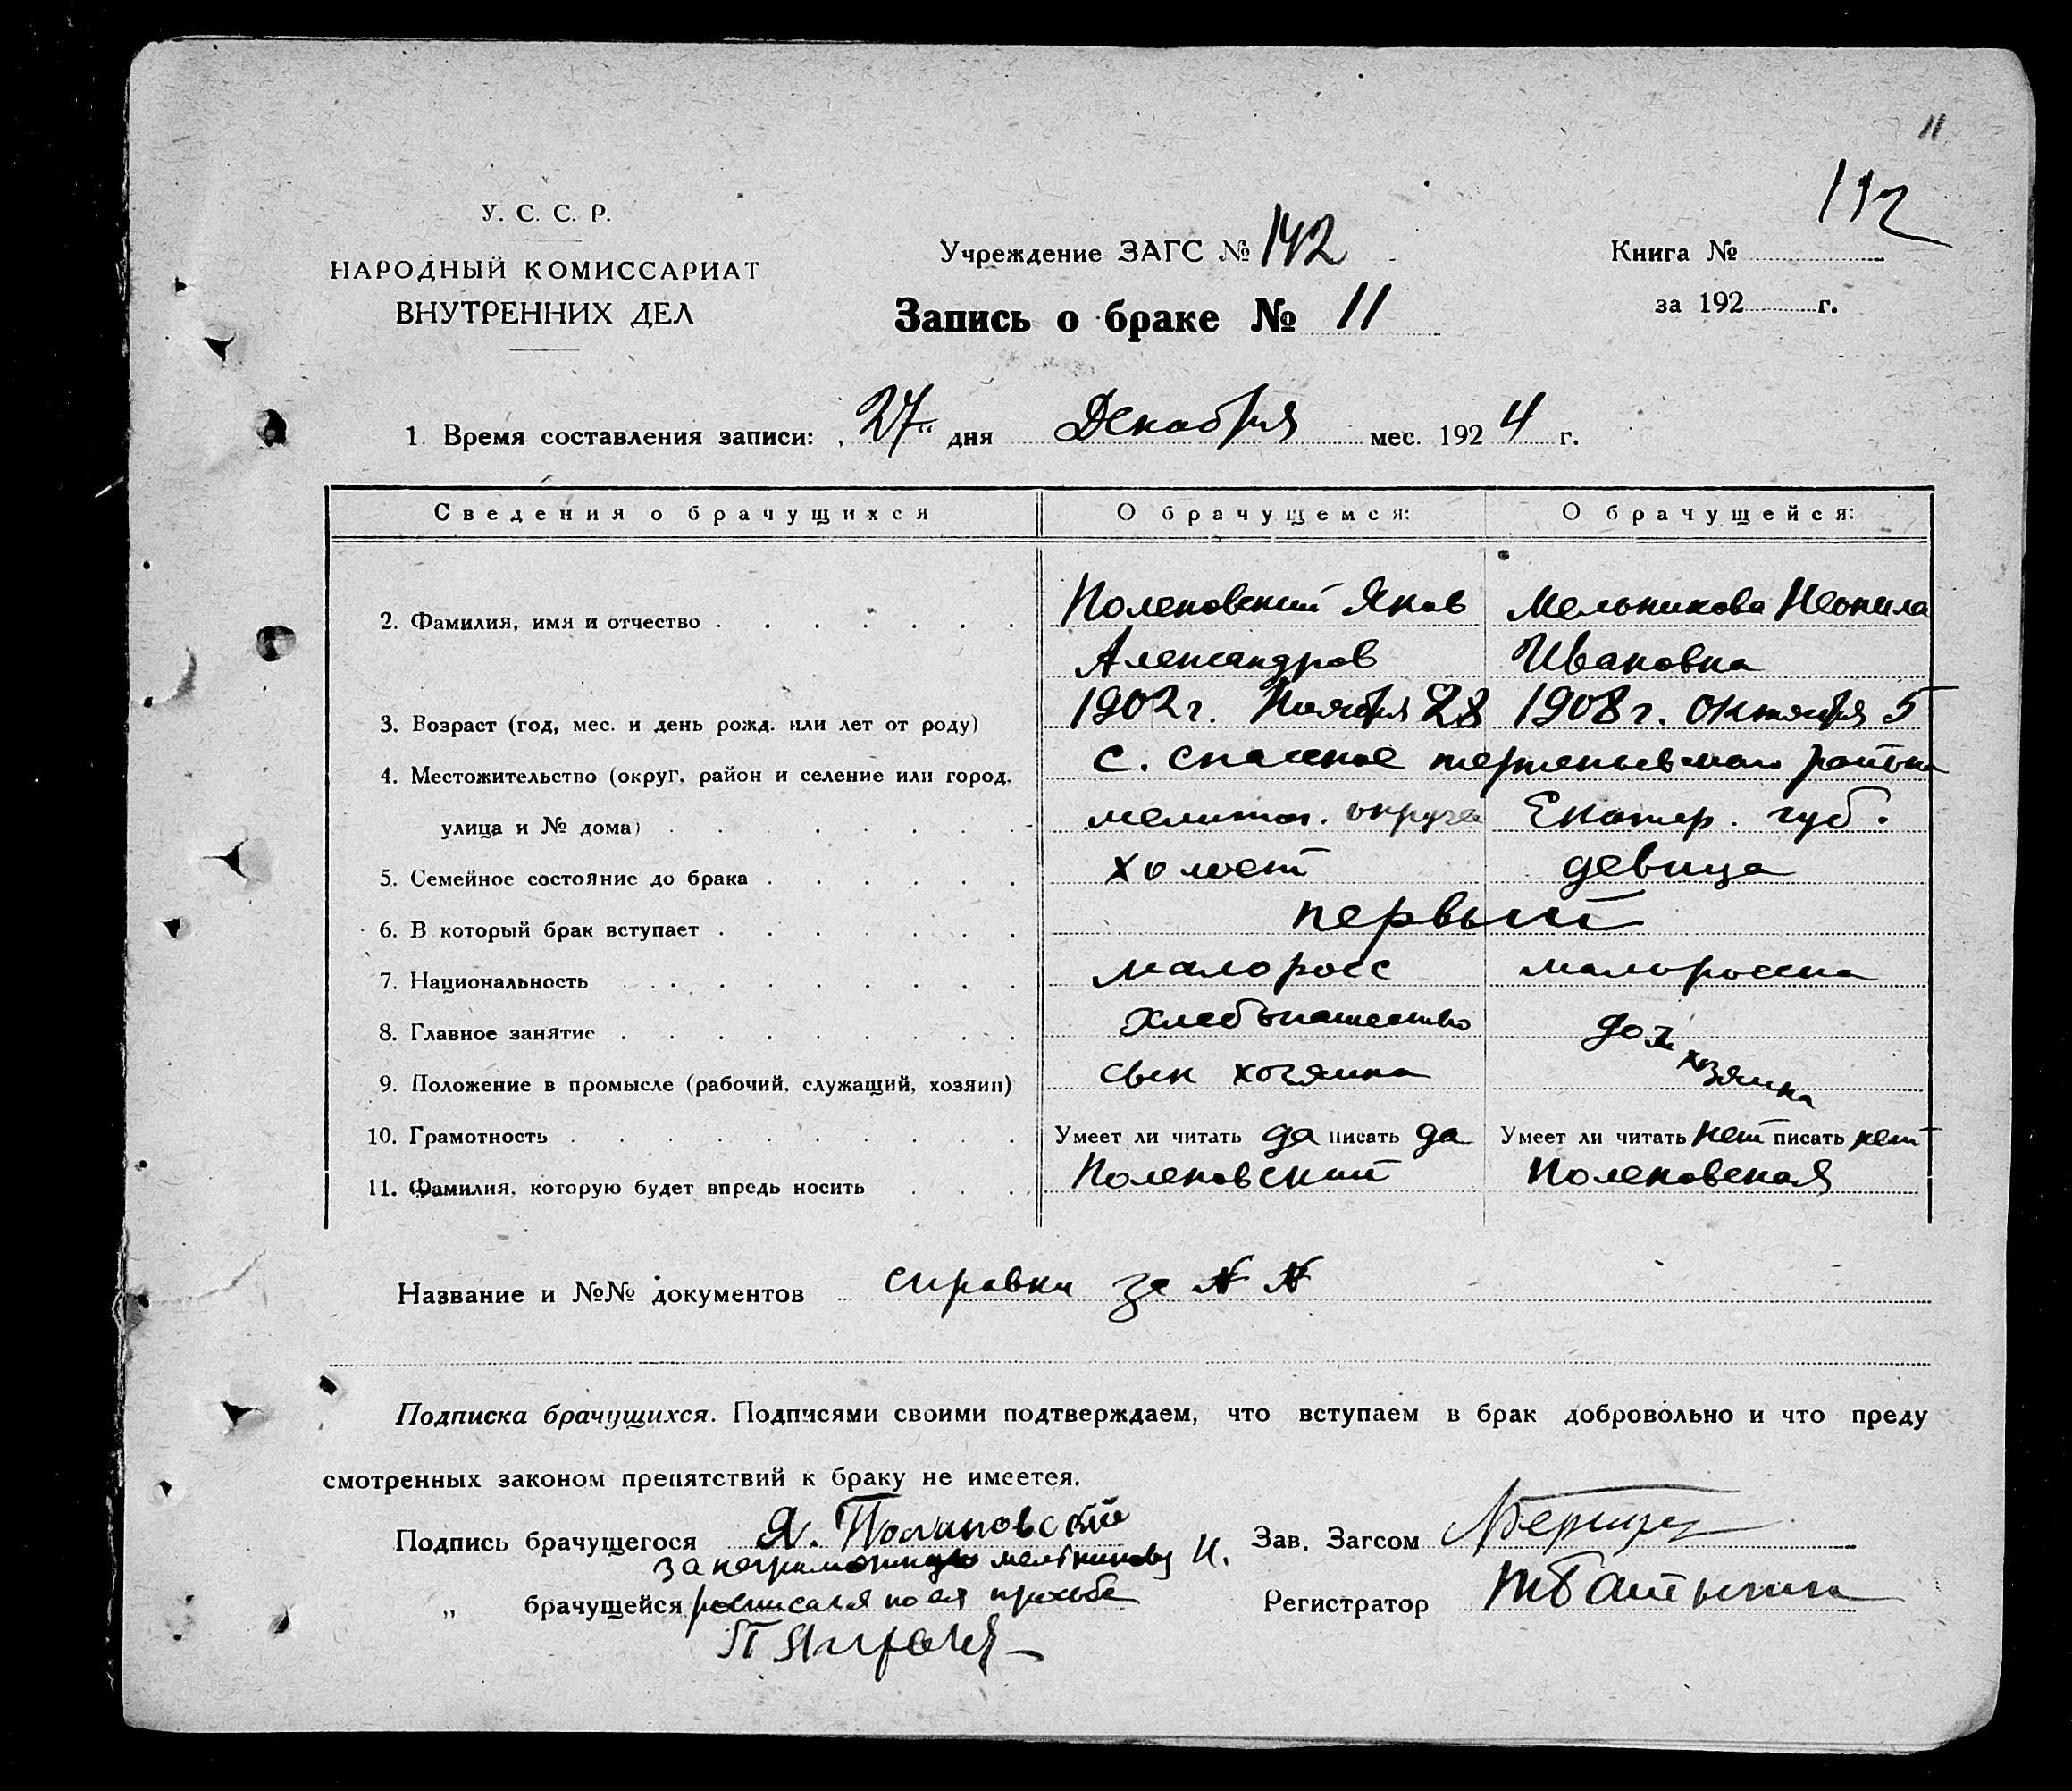 11
112
У. С. С. Р.
НАРОДНЫЙ КОМИССАРИАТ
ВНУТРЕННИХ ДЕЛ
Учреждение ЗАГС № 142
Книга №
за 192 г.
Запись о браке № 11
1. Время составления записи: „27“ дня Декабря мес. 1924 г.
Сведения о брачущихся О брачущемся: О брачущейся:
2. Фамилия, имя и отчество Полековский Яков Мельникова Неонила
Александров Ивановна
3. Возраст (год, мес. и день рожд. или лет от роду) 1902 г. Ноября 28 1908 г. октября 5
4. Местожительство (округ, район и селение или город, с. спасское района
улица и № дома) мелитоп. округа Екатер. губ.
5. Семейное состояние до брака холост девица
6. В который брак вступает первый
7. Национальность малоросс малоросска
8. Главное занятие хлебопашество дом
9. Положение в промысле (рабочий, служащий, хозяин) сын хозяина хозяйка
10. Грамотность Умеет ли читать да писать да Умеет ли читать нет писать нет
11. Фамилия, которую будет впредь носить Полековский Полековская
Название и №№ документов справки за № №
Подписка брачущихся. Подписями своими подтверждаем, что вступаем в брак добровольно и что преду
смотренных законом препятствий к браку не имеется.
Подпись брачущегося Я. Зав. Загсом
за неграмотную мельникову Н.
„ брачущейся росписался по ея прозьбе Регистратор